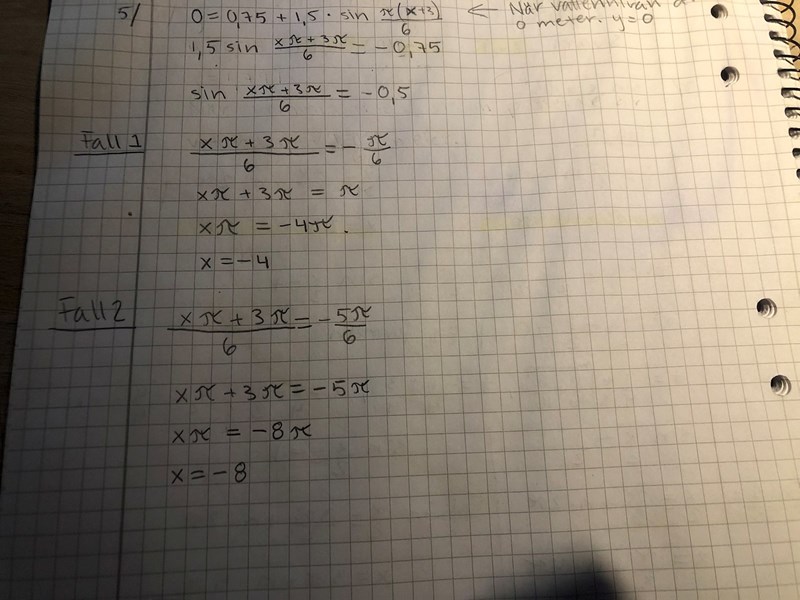 5/ 0 = 0,75 + 1,5 · sin π(x+3)/6 ← När vattennivån
0 meter. y=0
1,5 sin xπ+3π/6 = -0,75
sin xπ+3π/6 = -0,5
Fall 1 xπ+3π/6 = -π/6
xπ+3π = π
xπ = -4π.
x = -4
Fall 2 xπ+3π/6 = -5π/6
xπ+3π = -5π
xπ = -8π
x = -8